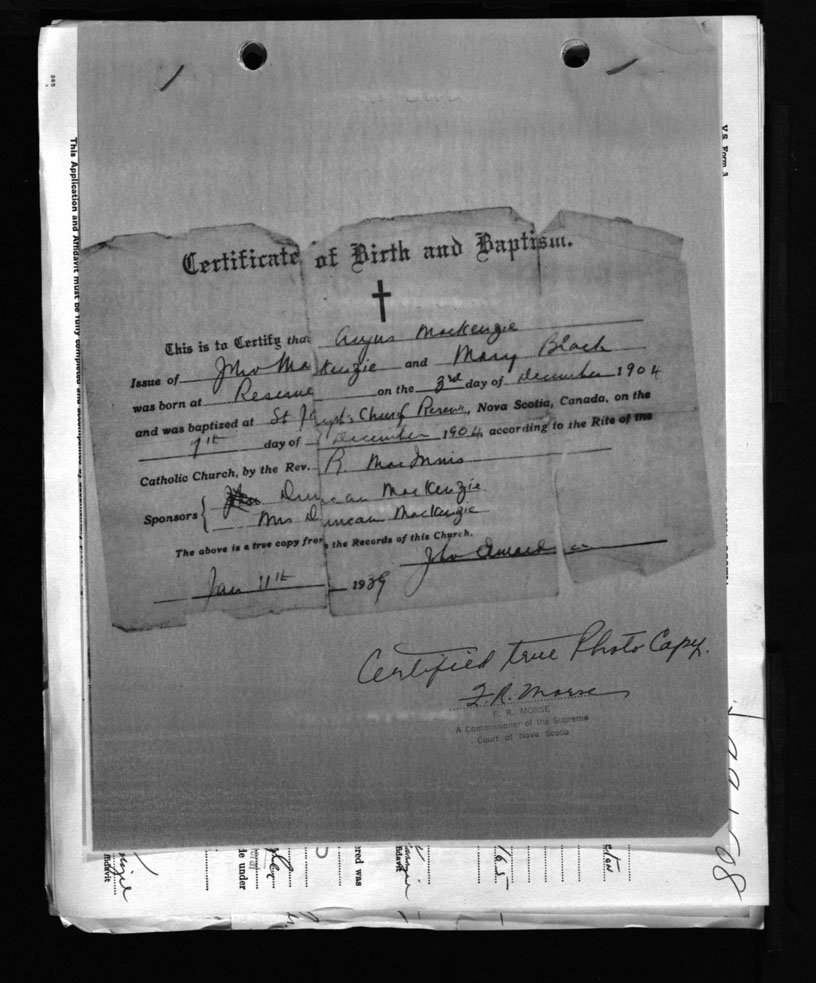 385
V.S. Form 3
This Application and Affidavit must be fully completed and accompanied
Certificate of Birth and Baptism.
This is to Certify that Angus MacKenzie
Issue of John MacKenzie and Mary Black
was born at Reserve on the 3rd day of December 1904
and was baptized at St Joseph's Church Reserve, Nova Scotia, Canada, on the
7th day of December 1904, according to the Rite of the
Catholic Church, by the Rev. R MacInnis
Sponsors { Duncan MacKenzie
Mrs Duncan MacKenzie
The above is a true copy from the Records of this Church.
Jan 11th 1939 John
Certified true Photo Copy.
F. R. Morse
F. R. MORSE
A Commissioner of the Supreme
Court of Nova Scotia
ffidavit
de under
red was
ffidavit
165